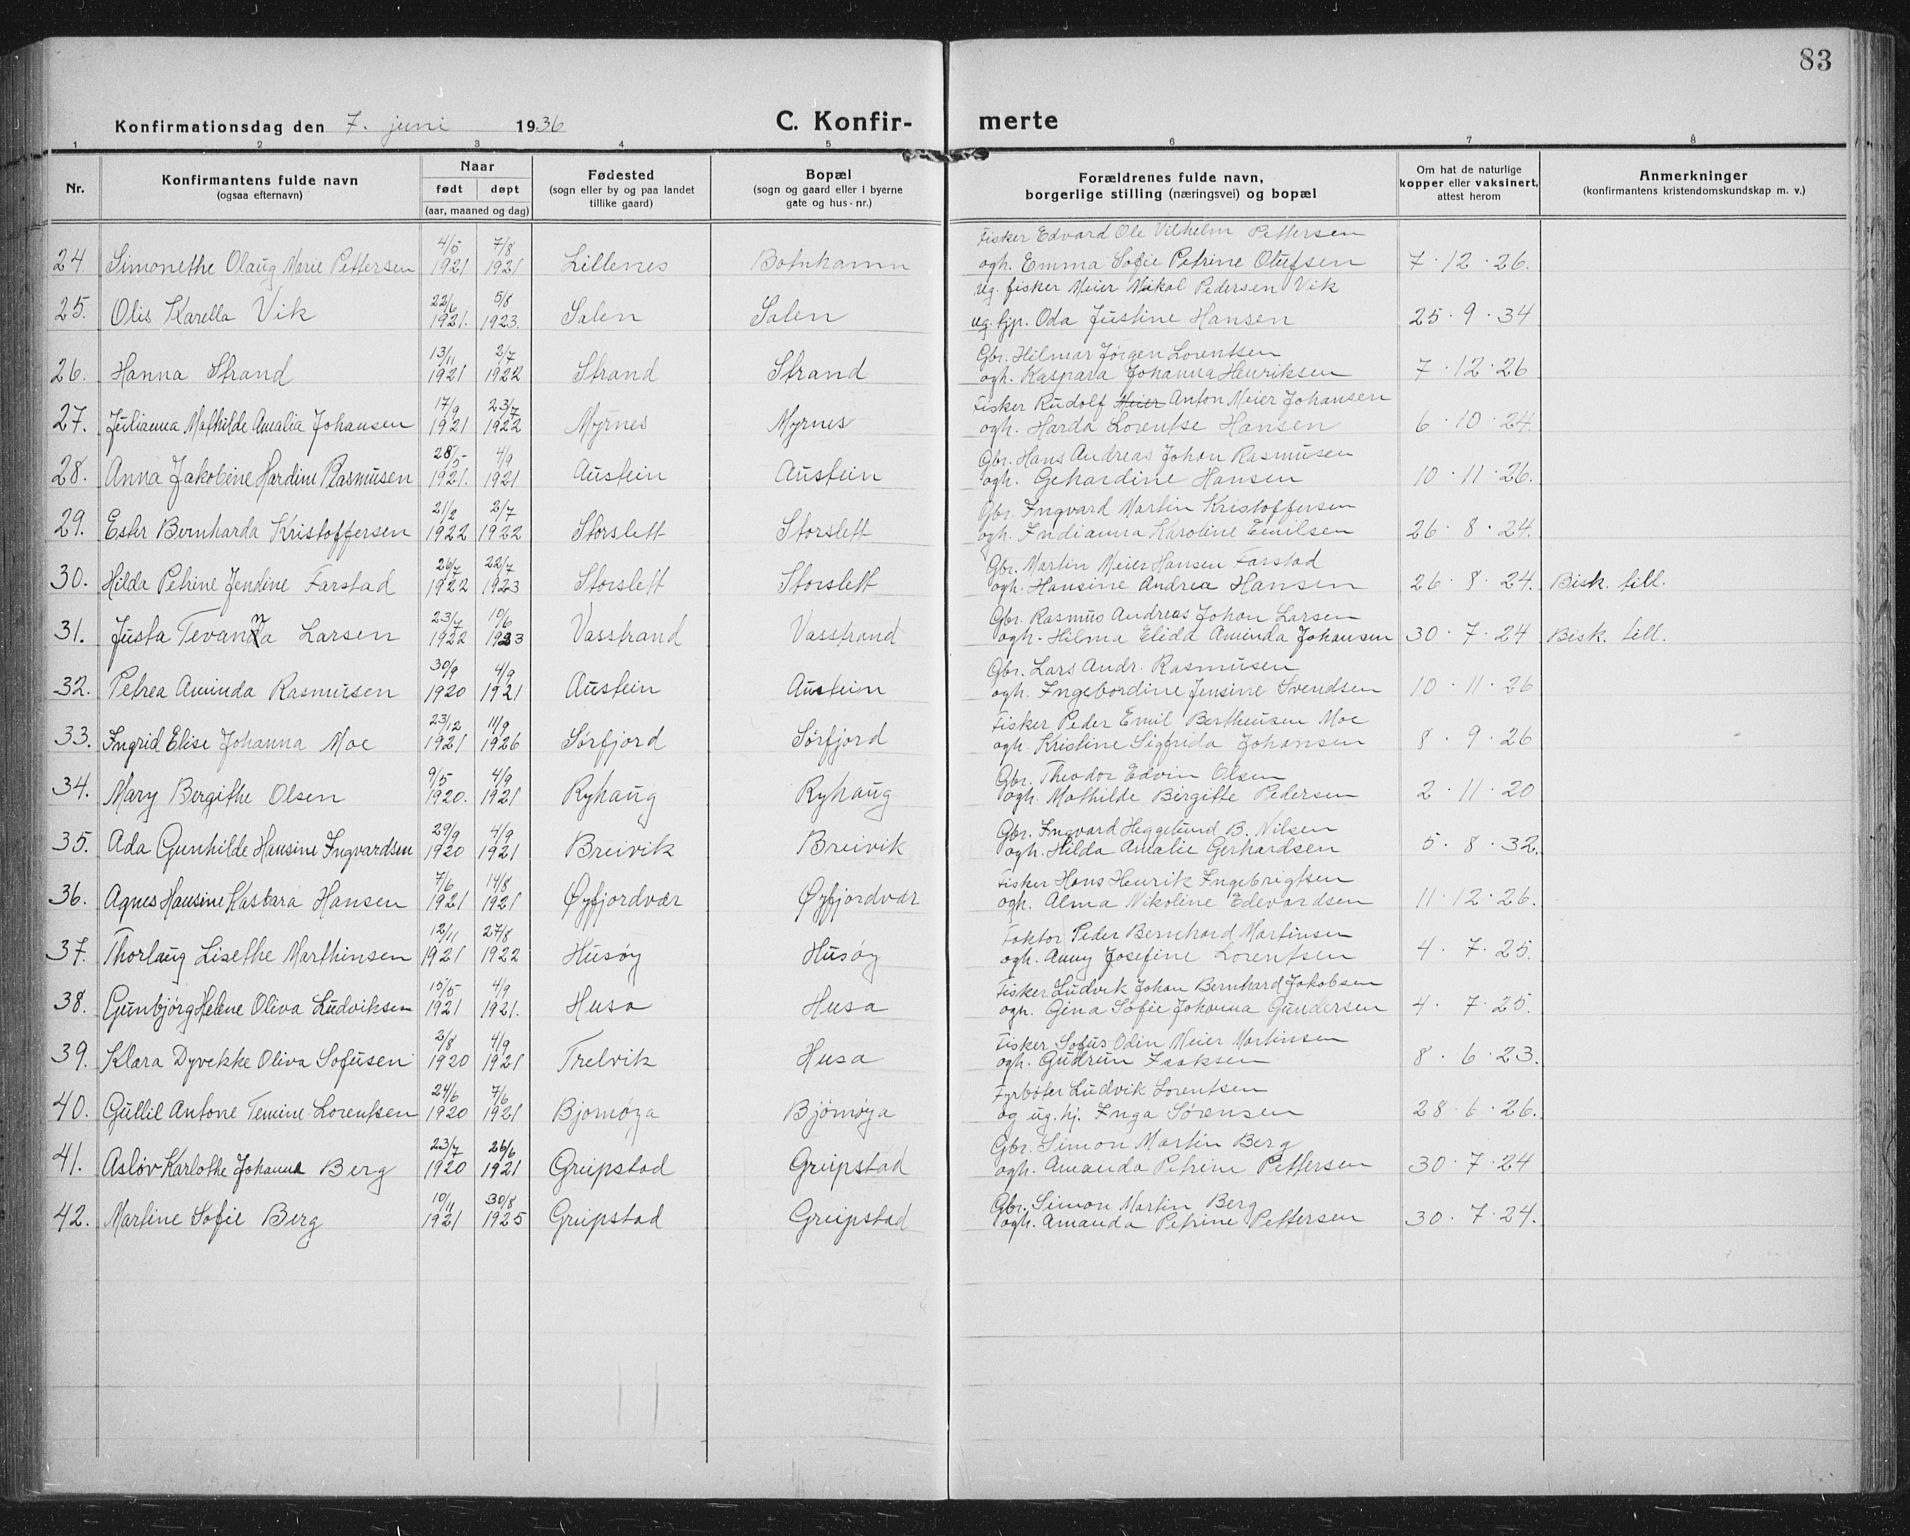 83
Konfirmationsdag den 7. juni 1936
C. Konfir- merte
1 2 3 4 5 6 7 8
Nr.
Konfirmantens fulde navn
(ogsaa efternavn)
Naar
født døpt
(aar, maaned og dag)
Fødested
(sogn eller by og paa landet
tillike gaard)
Bopæl
(sogn og gaard eller i byerne
gate og hus-nr.)
Forældrenes fulde navn,
borgerlige stilling (næringsvei) og bopæl
Om hat de naturlige
kopper eller vaksinert,
attest herom
Anmerkninger
(konfirmantens kristendomskundskap m. v.)
4/5 7/8 Fisker Edvard Ole Vilhelm Pettersen
24. Simonethe Olaug Marie Pettersen 1921 1921 Lillenes Botnhamn ogh. Emma Sofie Petrine Olufsen 7·12·26.
22/6 5/8 ug. fisker Meier Mikal Pedersen Vik
25. Olis Karella Vik 1921. 1923. Salen Salen ug. pp. Oda Justine Hansen 25·9·34
13/11 2/7 Gbr. Hilmar Jørgen Lorentsen
26. Hanna Strand 1921 1922 Strand Strand ogh. Kaspara Johanna Henriksen 7·12·26
17/9 23/7 Fisker Rudolf Meier Anton Meier Johansen
27. Julianna Mathilde Amalia Johansen 1921 1922 Myrnes Myrnes ogh. Harda Lorentse Hansen 6·10·24.
28/5 4/9 Gbr. Hans Andreas Johan Rasmusen
28. Anna Jakobine Hardine Rasmusen 1921. 1921 Austein Austein ogh. Gehardine Hansen 10·11·26.
21/2 2/7 Gbr. Ingvard Martin Kristoffersen
29. Ester Bernharda Kristoffersen 1922 1922 Storslett Storslett ogh. Indianna Karoline Emilsen 26·8·24.
26/7 22/7 Gbr. Martin Meier Hansen Farstad
30. Hilda Petrine Jendine Farstad 1922 1923 Storslett Storslett ogh. Hansine Andrea Hansen 26·8·24. Bisk. till.
23/7 10/6 Gbr. Rasmus Andreas Johan Larsen
31. Justa Tevanna Larsen 1922 1923 Vasstrand Vasstrand ogh. Hilma Elida Aminda Johansen 30·7·24 Bisk. till.
30/9 4/9 Gbr. Lars Andr. Rasmusen
32. Petrea Aminda Rasmusen 1920 1921 Austein Austein ogh. Ingebordine Jensine Svendsen 10·11·26
23/12 11/9 Fisker Peder Emil Bertheusen Moe
33. Ingrid Elise Johanna Moe 1921 1926 Sørfjord Sørfjord ogh. Kristine Sigfrida Johansen 8·9·26
9/5 4/9 Gbr. Theodor Edvin Olsen
34. Mary Bergithe Olsen 1920. 1921 Ryhaug Ryhaug ogh. Mathilde Birgitte Pedersen 2·11·20
29/9 4/9 Gbr. Ingvard Heggelund B. Nilsen
35. Ada Gunhilde Hansine Ingvardsen 1920 1921 Breivik Breivik ogh. Hilda Amalie Gerhardsen 5·8·32.
7/6 14/8 Fisker Hans Henrik Ingebrigtsen
36. Agnes Hansine Kasbara Hansen 1921 1921 Øyfjordvær Øyfjordvær ogh. Alma Nikoline Edevardsen 11·12·26.
12/11 27/8 Faktor Peder Bernhard Martinsen
37. Thorlaug Lisethe Marthinsen 1921 1922 Husøy Husøy ogh. Anny Josefine Lorentsen 4·7·25.
15/5 4/9 Fisker Ludvik Johan Bernhard Jakobsen
38. Gunbjørg Helene Oliva Ludviksen 1921 1921. Husa Husa ogh. Gina Sofie Johanna Gundersen 4·7·25.
3/8 4/9 Fisker Sofus Odin Meier Martinsen
39. Klara Dyvekke Oliva Sofusen 1920 1921 Trelvik Husa ogh. Gudrun Isaksen 8·6·23.
24/6 7/6 Fyrbøter Ludvik Lorentsen
40. Gullil Antone Temine Lorentsen 1920 1921 Bjornøya Bjørnøya og ug. hj. Inga Sørensen 28·6·26.
23/7 26/6 Gbr. Simon Martin Berg
41. Asløv Karlothe Johanna Berg 1920 1921 Greipstad Greipstad ogh. Amanda Petrine Pettersen 30·7·24
10/11 30/8 Gbr. Simon Martin Berg
42. Martine Sofie Berg 1921 1925 Greipstad Greipstad ogh. Amanda Petrine Pettersen 30·7·24.